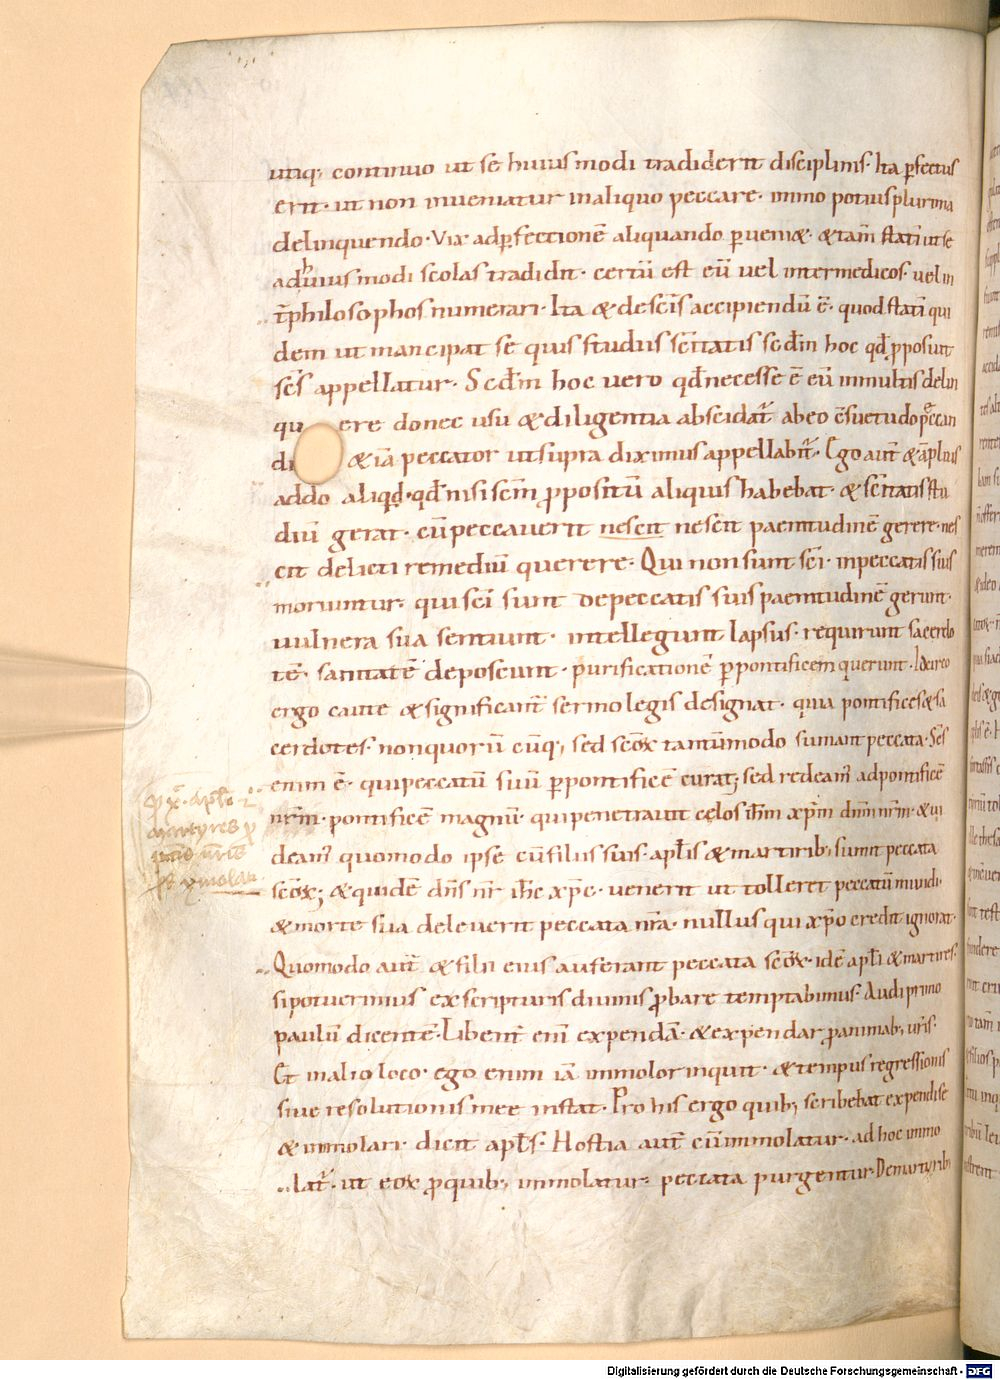 utiq; continuo ut se huius modi tradiderit disciplinis· Ita p̱fectus
erit· ut non inueniatur inaliquo peccare· immo potius plurima
delinquendo· Vix adp̱fectionē aliquando p̱ueniæ· &tam̄ statī ut se
adhuius modi scolas tradidit· certū est eū uel inter medicos· uel in
t̄ philosophos numerari· Ita & de sc̄is accipiendū ē· quod statī qui
dem ut mancipat se quis studiis sc̄itatis sc̄dm hoc qd̄ p̱posuit
sc̄s appellatur· Sc̄dm hoc uero qd̄ necesse ē eū inmultis delin
qu ere donec usu & diligentia abscidat̄ abeo c̄suetudo peccan
di &iā peccator ut supra diximus appellabit̄· Ego aut̄ & āplius
addo aliqd· qd̄ nisi sc̄m p̱positū aliquis habebat· & sc̄itatis stu
diū gerat· cū peccauerit nescit nescit paenitudinē gerere· nes
cit delicti remediū querere· Qui non sunt sc̄i· inpeccatis suis
moriuntur· qui sc̄i sunt depeccatis suis paenitudinē gerunt·
uulnera sua sentiunt· intellegunt lapsus· requirunt sacerdo
tē· sanitatē deposcunt· purificationē p̱ pontificem querunt· Idcirco
ergo caute & significant̄ sermo legis designat· quia pontifices & sa
cerdotes· non quorū cūq; sed sc̄oꝝ tantūmodo sumant peccata· Sc̄s
enim ē· qui peccatū suū p̱ pontificē curat; sed redeam̄ ad pontificē
nr̄m· pontificē magnū· qui penetrauit cęlos ih̄m xp̄m dn̄m nr̄m· & ui
deam̄ quomodo ipse cū filiis suis· apl̄is & martirib; sumit peccata
sc̄oꝝ; & quidē dn̄s nr̄ ih̄c xp̄c· uenerit ut tolleret peccatū mundi·
& morte sua deleuerit peccata nr̄a· nullus qui xp̄o credit ignorat·
Quomodo aut̄ & filii eius auferant peccata sc̄oꝝ· idē apl̄i & martires·
si potuerimus ex scripturis diuinis p̱bare temptabimus· Audi primo
paulū dicentē· Libent̄ enī expendā· & expendar p̱ animab; uris·
Et in alio loco· ego enim iā immolor inquit· & tempus regressionis
siue resolutionis mee instat· Pro his ergo quib; scribebat expendi se
& immolari· dicit apl̄s· Hostia aut̄ cū immolatur· ad hoc immo
lat̄· ut eoꝝ p̱ quib; immolatur· peccata purgentur· Demartyrib;
martyres
Digitalisierung gefördert durch die Deutsche Forschungsgemeinschaft - DFG